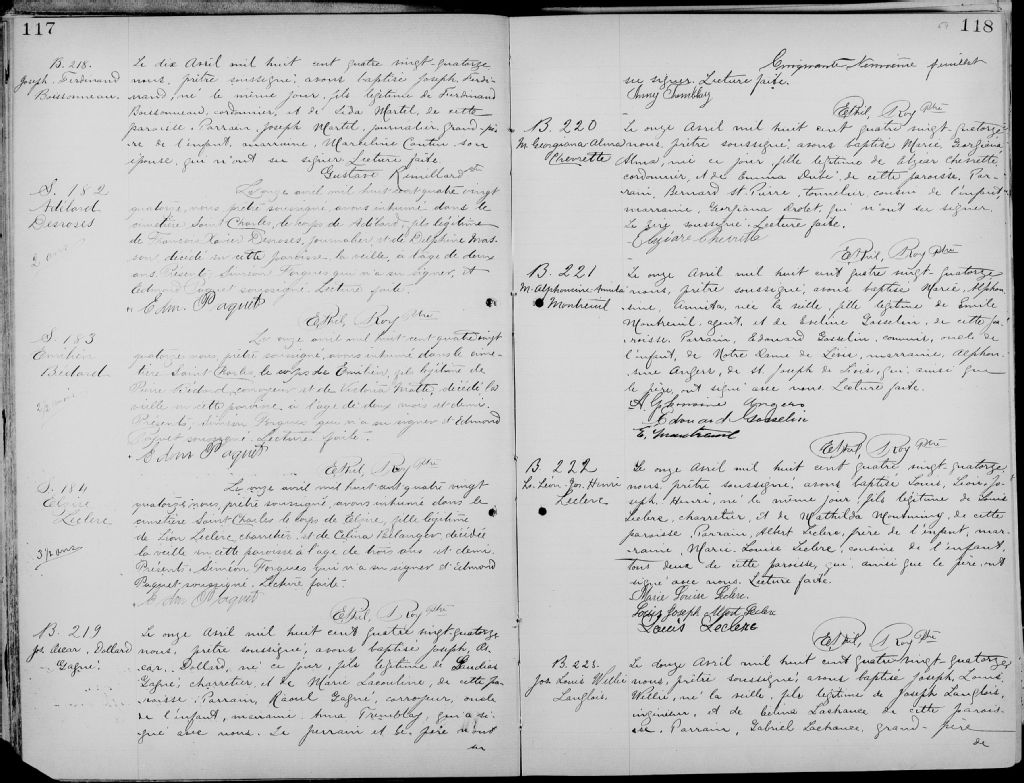 117
B. 218.
Joseph. Ferdinand
Boissonneau.
Le dix Avril mil huit cent quatre vingt-quatorze
nous, prêtre soussigné, avons baptisé Joseph, Ferdi-
nand, né le même jour, fils légitime de Ferdinand
Boissonneau, cordonnier, et de Léda Martel, de cette
paroisse. Parrain, Joseph Martel, journalier, grand-pè-
re de l'enfant, marraine, Marceline Cantin son
épouse, qui n'ont su signer. Lecture faite.
Gustave Rémillard
S. 182
Adélard
Desrosiers
2 ans
Le onze avril mil huit cent quatre vingt
quatorze, nous, prêtre soussigné, avons inhumé dans le
cimetière Saint Charles, le corps de Adélard, fils légitime
de François Xavier Desroses, journalier, et de Delphine Mas-
son décédé en cette paroisse la veille, à l'age de deux
ans. Présents, Siméon Forgues qui n'a su signer, et
Edmond Paquet soussigné. Lecture faite.
Edm. Paquet
Ethel. Roy ptre
S. 183
Emilien
Bédard
Le onze avril mil huit cent quatre vingt
quatorze, nous, prêtre soussigné, avons inhumé dans le cime-
tière Saint Charles, le corps de Emilien, fils légitime de
Pierre Bédard, corroyeur et de Victoria Miotte, décédé la
veille en cette paroisse, à l'age de deux mois et demi.
Présents, Siméon Forgues qui n'a su signer et Edmond
Paquet soussigné. Lecture faite.
Edm Paquet
Ethel. Roy ptre
S. 184
Elzire
Leclerc
3½ ans
Le onze avril mil huit cent quatre vingt
quatorze, nous, prêtre soussigné, avons inhumé dans le
cimetière Saint Charles le corps de Elzire, fille légitime
de Léon Leclerc, charretier, et de Celina Bélanger, décédée
la veille en cette paroisse à l'age de trois ans et demi.
Présents, Siméon Forgues qui n'a su signer et Edmond
Paquet soussigné. Lecture faite.
Edm Paquet
Ethel. Roy ptre
B. 219
Jos Oscar, Dollard
Gagné.
Le onze Avril mil huit cent quatre vingt-quatorze
nous, prêtre soussigné, avons baptisé Joseph, Os-
car, Dollard, né ce jour, fils légitime de
Gagné, charretier, et de Marie Lacouline, de cette pa-
roisse. Parrain, Raoul Gagné, corroyeur, oncle
de l'enfant, marraine Anna Tremblay, qui a si-
gné avec nous. Le parrain et le père n'ont
su
118
Cinquante neuvième feuillet
su signer. Lecture faite.
Anny Tremblay
Ethel. Roy ptre
B. 220
M. Georgiana Alma
Chevrette
Le onze Avril mil huit cent quatre vingt quatorze
nous, prêtre soussigné, avons baptisé Marie, Georgiana
Alma, née ce jour, fille légitime de Elzéar Chevrette,
cordonnier, et de Emma Dubé, de cette paroisse. Par-
rain, Bernard St. Pierre, tonnelier cousin de l'enfant,
marraine, Georgiana Drolet, qui n'ont su signer.
Le père soussigné. Lecture faite.
Elzéare Chevrette
Ethel. Roy ptre
B. 221
M. Alphonsine Annita
Montreuil
Le onze Avril mil huit cent quatre vingt quatorze
nous, prêtre soussigné, avons baptisé Marie, Alphon-
sine, Annita, née la veille, fille légitime de Emile
Montreuil, agent, et de Eveline Gosselin, de cette pa-
roisse. Parrain, Edouard Gosselin, commis, oncle de
l'enfant, de Notre Dame de Lévis, marraine, Alphon-
sine Angers, de St Joseph de Lévis, qui ainsi que
le père, ont signé avec nous. Lecture faite.
Alphonsine Angers
Edouard Gosselin
E. Montreuil
Ethel. Roy ptre
B. 222
Ls. Léon. Jos. Henri
Leclerc
Le onze Avril mil huit cent quatre vingt-quatorze
nous, prêtre soussigné, avons baptisé Louis, Léon, Jo-
seph, Henri, né le même jour, fils légitime de Louis
Leclerc, charretier, et de Mathilda Montminy, de cette
paroisse. Parrain, Albert Leclerc, frère de l'enfant, mar-
raine, Marie-Louise Leclerc, cousine de l'enfant,
tous deux de cette paroisse, qui, ainsi que le père, ont
signé avec nous. Lecture faite.
Marie Louise Leclerc.
Louis Joseph Albert Leclerc
Louis Leclerc
Ethel. Roy ptre
B. 223.
Jos Louis Willie
Langlois.
Le douze Avril mil huit cent quatre vingt-quatorze
nous, prêtre soussigné, avons baptisé Joseph, Louis,
Willie, né la veille, fils légitime de Joseph Langlois,
ingénieur, et de Célina Lachance de cette parois-
se. Parrain, Gabriel Lachance, grand-père
de